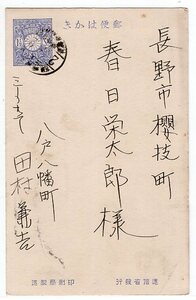 郵便はかき
長野市櫻枝町
春日栄太郎様
八戸八幡町
田村
逓信省発行
印刷局製造